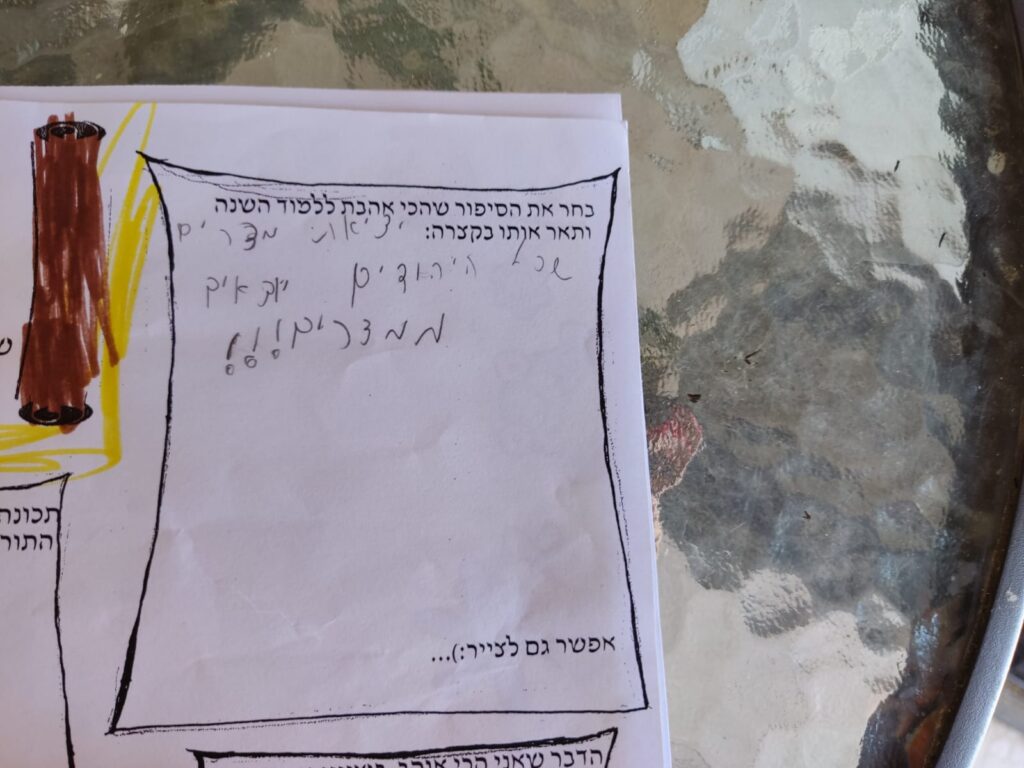 בחר את הסיפור שהכי אהבת ללמוד השנה
ותאר אותו בקצרה:
יציאת מצרים
שכל היהודים יוצאים
ממצרים!!!
אפשר גם לצייר:)...
תכונת
התור
הדבר שאני הכי אוהב